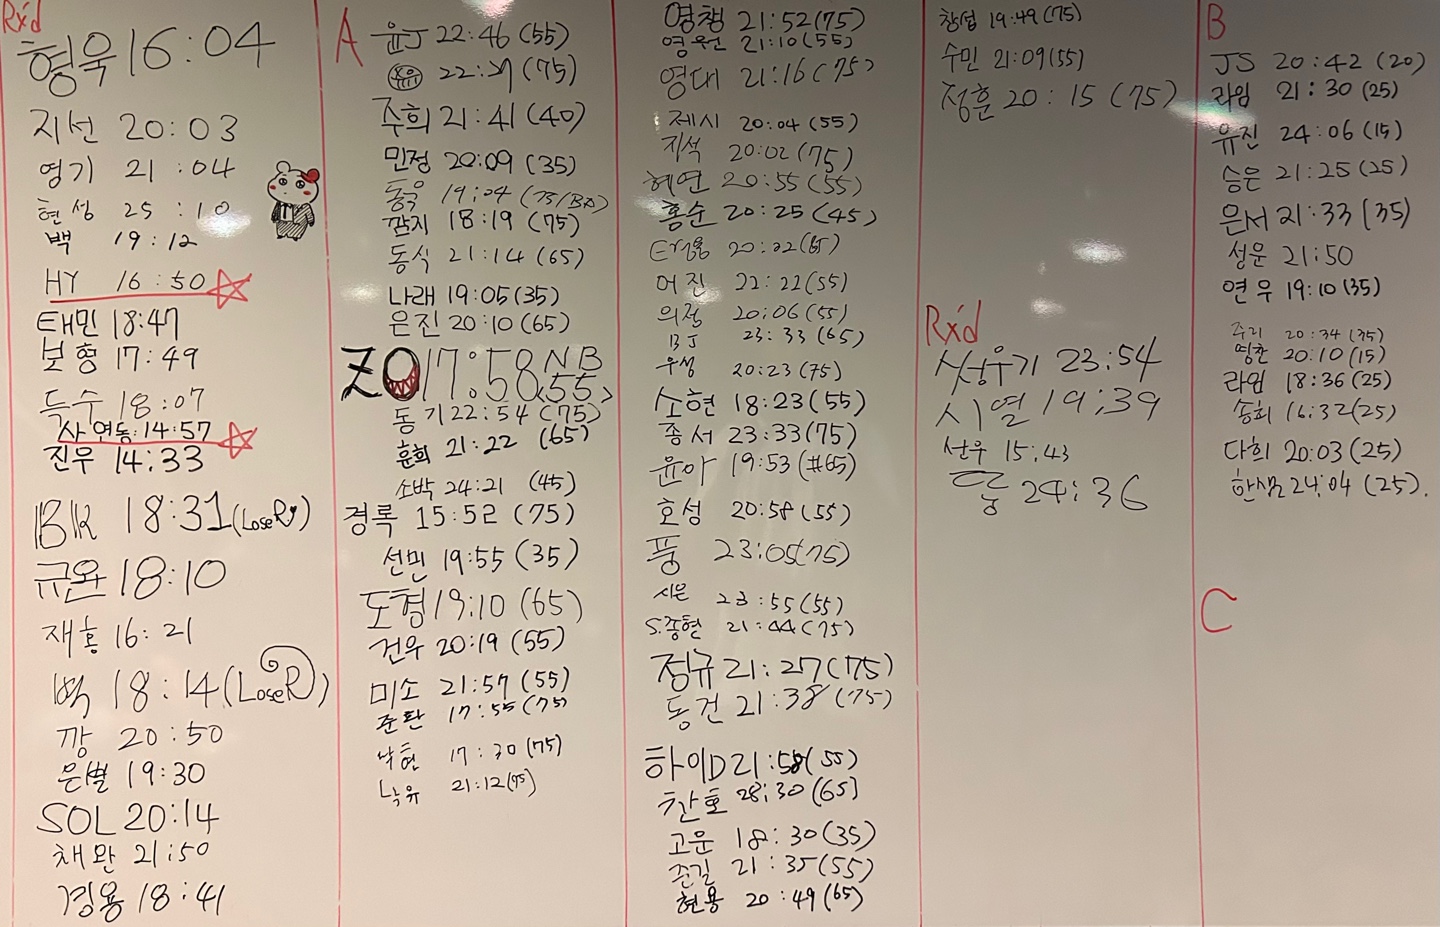 Rx'd
형욱 16:04
지선 20:03
영기 21:04
현성 25:10
백 19:12
HY 16:50
태민 18:47
보형 17:49
득수 18:07
사연동:14:57
진우 14:33
BK 18:31(LoseR)
규완 18:10
재홍 16:21
백 18:14(LoseR)
깡 20:50
은별 19:30
SOL 20:14
채완 21:50
경용 18:41
A
윤J 22:46 (55)
(75)
주희 21:41 (40)
민정 20:09 (35)
동욱 19:04
깜지 18:19 (75)
동식 21:14 (65)
나래 19:05 (35)
은진 20:10 (65)
ZO 17:58 NB (55)
동기 22:54 (75)
훈희 21:22 (65)
소박 24:21 (45)
경록 15:52 (75)
선민 19:55 (35)
도형 19:10 (65)
건우 20:19 (55)
미소 21:57 (55)
준환 17:55 (75)
낙현 17:30 (75)
낙유 21:12 (75)
영책 21:52 (75)
영원 21:10 (55)
영대 21:16 (75)
제시 20:04 (55)
지석 20:02 (75)
혜연 20:55 (55)
홍순 20:25 (45)
20:22
어진 22:22 (55)
의정 20:06 (55)
BJ 23:33 (65)
우성 20:23 (75)
소현 18:23 (55)
종서 23:33 (75)
윤아 19:53 (#65)
호성 20:58 (55)
풍 23:05 (75)
시은 23:55 (55)
S.종현 21:44 (75)
정규 21:27 (75)
동건 21:38 (75)
하이D 21:58 (55)
찬호 28:30 (65)
고운 18:30 (35)
준길 21:35 (55)
현용 20:49 (65)
창섭 19:49 (75)
수민 21:09 (55)
정훈 20:15 (75)
Rx'd
성우기 23:54
시열 19:39
선우 15:43
뚱 24:36
B
JS 20:42 (20)
라임 21:30 (25)
유진 24:06 (15)
승은 21:25 (25)
은서 21:33 (35)
성운 21:50
연우 19:10 (35)
주리 20:34 (35)
영찬 20:10 (15)
라임 18:36 (25)
송희 16:32 (25)
다희 20:03 (25)
한샘 24:04 (25).
C